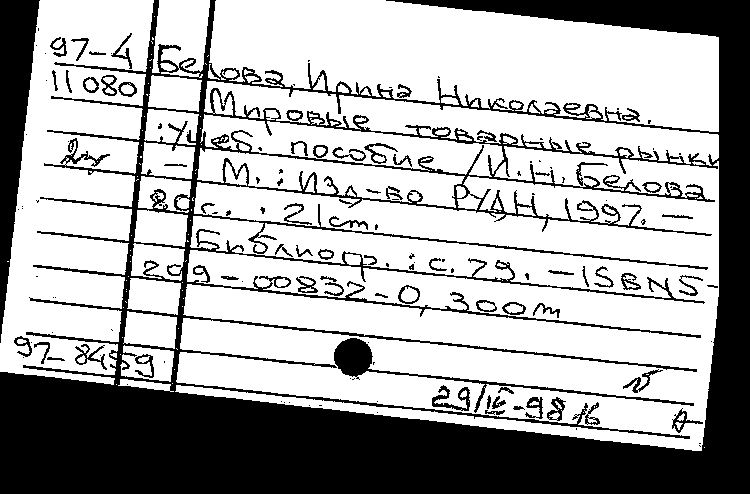 97-4 Белова, Ирина Николаевна.
11080 Мировые товарные рынки
: Учеб. пособие. / И.Н. Белова
2экз. . – М. : Изд-во РУДН, 1997. –
80с. ; 21см.
Библиогр. : с. 79. – ISBN 5-
209-00832-0, 300т
97-8459
29/IV-98 16